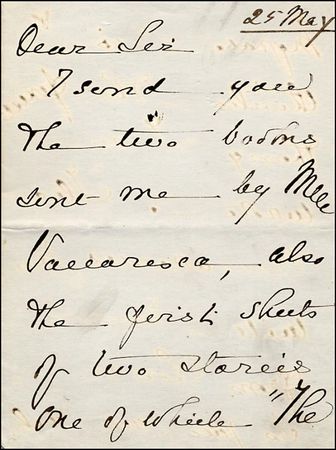 25 May
Dear Sir
I send you
the two books
sent me by Mlle
Vacaresco, also
the first sheets
of two stories
one of which "The